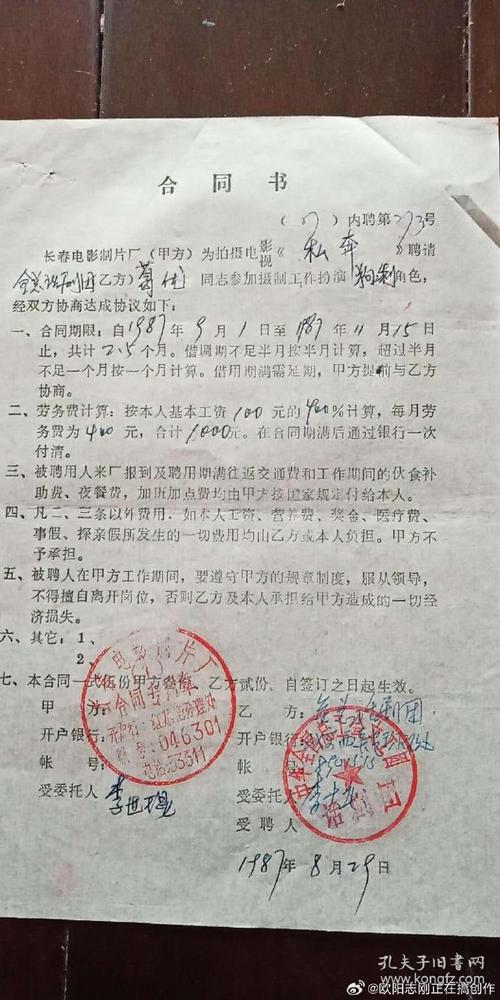 合同书
(87)内聘第273号
长春电影制片厂(甲方)为拍摄电影视《私奔》聘请
全总话剧团(乙方)葛优 同志参加摄制工作扮演 角色,
经双方协商达成协议如下:
一、合同期限:自1987年9月1日至1987年11月15日
止,共计2.5个月。借调期不足半月按半月计算,超过半月
不足一个月按一个月计算。借用期满需延期,甲方提前与乙方
协商。
二、劳务费计算:按本人基本工资100元的400%计算,每月劳
务费为400元,合计1000元。在合同期满后通过银行一次
付清。
三、被聘用人来厂报到及聘用期满往返交通费和工作期间的伙食补
助费、夜餐费,加班加点费均由甲方按国家规定付给本人。
四、凡二、三条以外费用,如本人工资、营养费、奖金、医疗费、
事假、探亲假所发生的一切费用均由乙方或本人负担。甲方不
予承担。
五、被聘人在甲方工作期间,要遵守甲方的规章制度,服从领导,
不得擅自离开岗位,否则乙方及本人承担给甲方造成的一切经
济损失。
六、其它:1、
2、
七、本合同一式伍份甲方叁份,乙方贰份,自签订之日起生效。
甲 方: 乙 方:全总话剧团
开户银行: 开户银行:
帐 号: 帐 号:
受委托人 受委托人
受聘人
1987年8月29日
电影制片厂
合同专用章
046301
电话:53311
话剧团
孔夫子旧书网
kongfz.com
@欧阳志刚正在搞创作